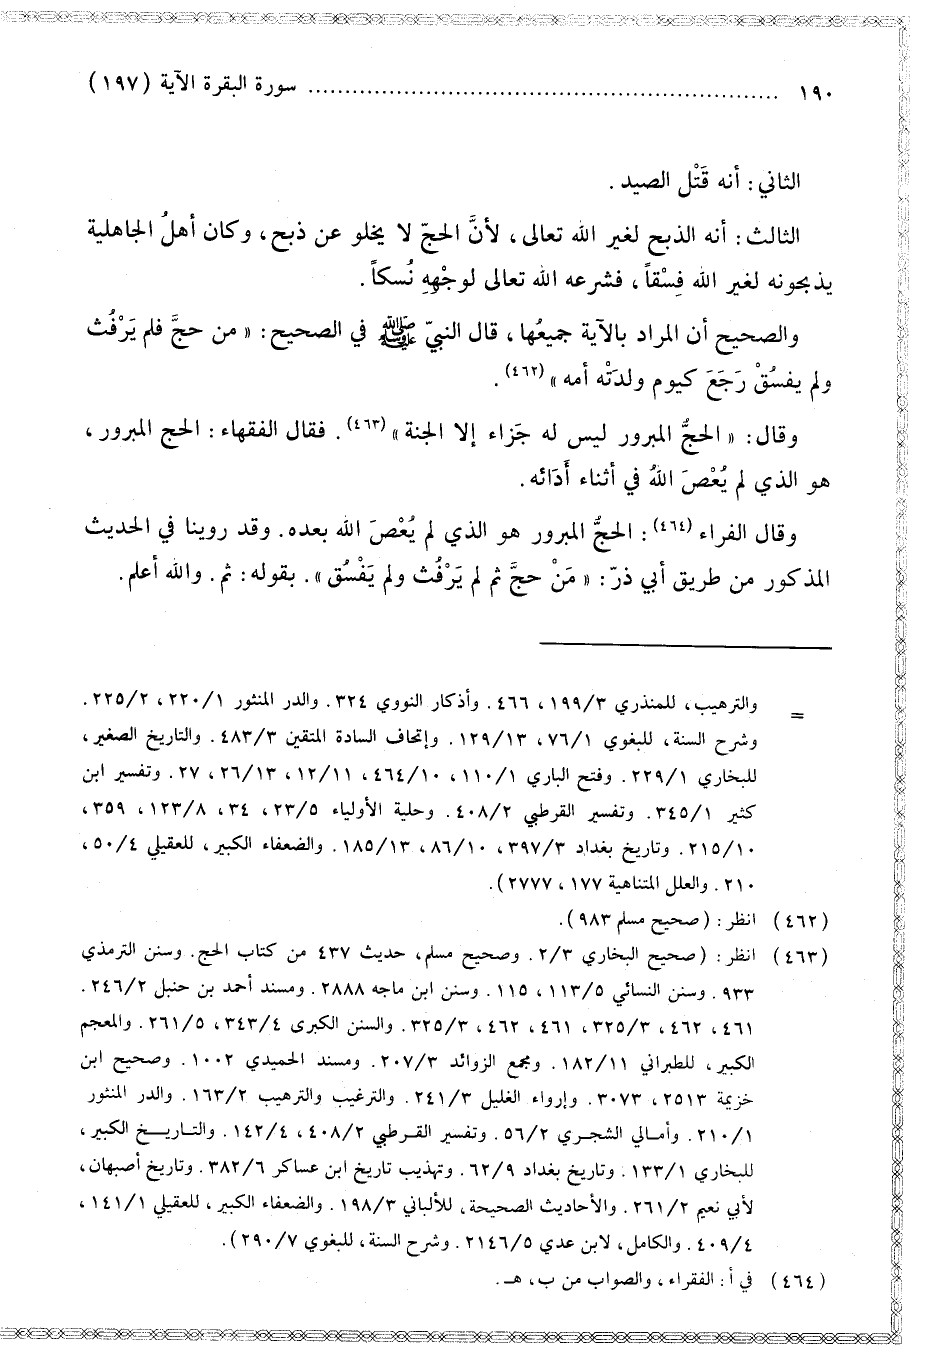 ١٩٠ ................................................................ سورة البقرة الآية (١٩٧)
الثاني: أنه قَتْل الصيد.
الثالث: أنه الذبح لغير الله تعالى، لأنَّ الحجّ لا يخلو عن ذبح، وكان أهلُ الجاهلية
يذبحونه لغير الله فِسْقاً، فشرعه الله تعالى لوجْههِ نُسكاً.
والصحيح أن المراد بالآية جميعُها، قال النبيّ ﷺ في الصحيح: «من حجَّ فلم يَرْفُث
ولم يفسُقْ رَجَعَ كيوم ولدَتْه أمه» (٤٦٢).
وقال: «الحجُّ المبرور ليس له جَزاء إلا الجنة» (٤٦٣). فقال الفقهاء: الحج المبرور،
هو الذي لم يُعْصَ اللهُ في أثناء أَدَائه.
وقال الفراء (٤٦٤): الحجُّ المبرور هو الذي لم يُعْصَ الله بعده. وقد روينا في الحديث
المذكور من طريق أبي ذرّ: «مَنْ حجَّ ثم لم يَرْفُث ولم يَفْسُق». بقوله: ثم. والله أعلم.
= والترهيب، للمنذري ١٩٩/٣، ٤٦٦. وأذكار النووي ٣٢٤. والدر المنثور ٢٢٠/١، ٢٢٥/٢.
وشرح السنة، للبغوي ٧٦/١، ١٢٩/١٣. وإتحاف السادة المتقين ٤٨٣/٣. والتاريخ الصغير،
للبخاري ٢٢٩/١. وفتح الباري ١١٠/١، ٤٦٤/١٠، ١٢/١١، ٢٦/١٣، ٢٧. وتفسير ابن
كثير ٣٤٥/١. وتفسير القرطبي ٤٠٨/٢. وحلية الأولياء ٢٣/٥، ٣٤، ١٢٣/٨، ٣٥٩،
٢١٥/١٠. وتاريخ بغداد ٣٩٧/٣، ٨٦/١٠، ١٨٥/١٣. والضعفاء الكبير، للعقيلي ٥٠/٤،
٢١٠. والعلل المتناهية ١٧٧، ٢٧٧٧).
(٤٦٢) انظر: (صحيح مسلم ٩٨٣).
(٤٦٣) انظر: (صحيح البخاري ٢/٣. وصحيح مسلم، حديث ٤٣٧ من كتاب الحج. وسنن الترمذي
٩٣٣. وسنن النسائي ١١٣/٥، ١١٥. وسنن ابن ماجه ٢٨٨٨. ومسند أحمد بن حنبل ٢٤٦/٢.
٤٦١، ٤٦٢، ٣٢٥/٣، ٤٦١، ٤٦٢، ٣٢٥/٣. والسنن الكبرى ٣٤٣/٤، ٢٦١/٥. والمعجم
الكبير، للطبراني ١٨٢/١١. ومجمع الزوائد ٢٠٧/٣. ومسند الحميدي ١٠٠٢. وصحيح ابن
خزيمة ٢٥١٣، ٣٠٧٣. وإرواء الغليل ٢٤١/٣. والترغيب والترهيب ١٦٣/٢. والدر المنثور
٢١٠/١. وأمالي الشجري ٥٦/٢. وتفسير القرطبي ٤٠٨/٢، ١٤٢/٤. والتاريخ الكبير،
للبخاري ١٣٣/١. وتاريخ بغداد ٦٢/٩. وتهذيب تاريخ ابن عساكر ٣٨٢/٦. وتاريخ أصبهان،
لأبي نعيم ٢٦١/٢. والأحاديث الصحيحة، للألباني ١٩٨/٣. والضعفاء الكبير، للعقيلي ١٤١/١،
٤٠٩/٤. والكامل، لابن عدي ٢١٤٦/٥. وشرح السنة، للبغوي ٢٩٠/٧).
(٤٦٤) في أ: الفقراء، والصواب من ب، هـ.